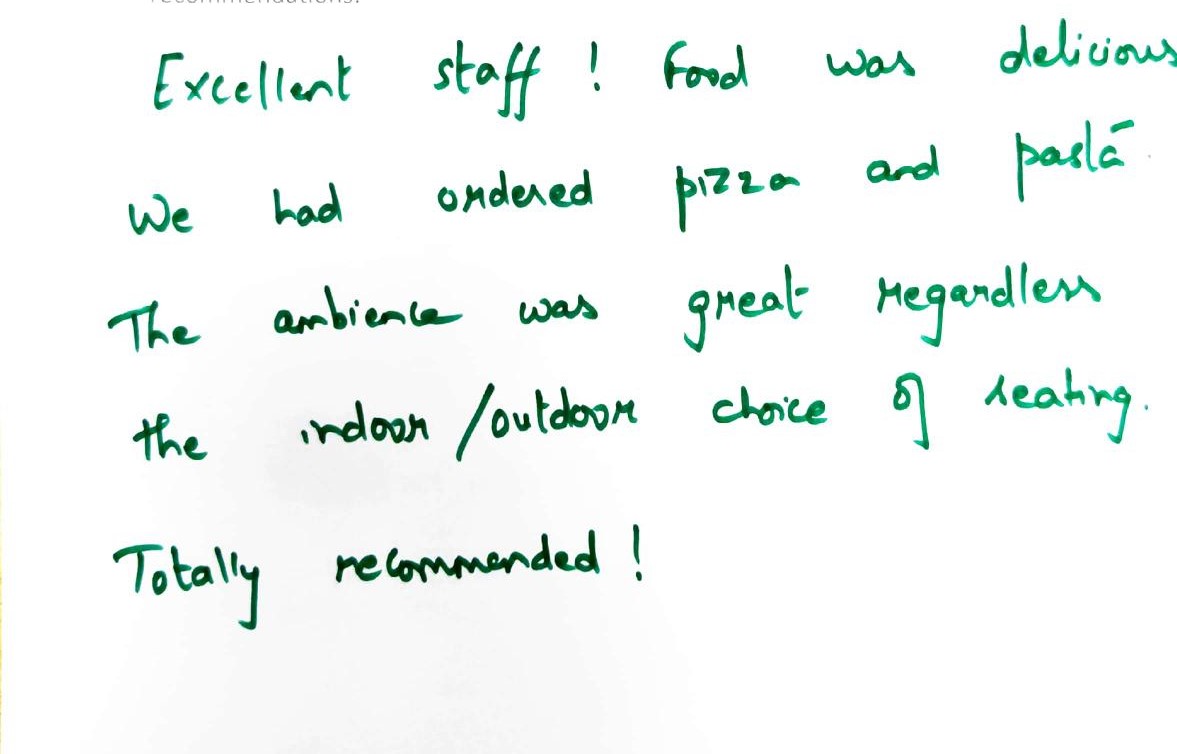 recommendations.
Excellent staff! Food was delicious
We had ordered pizza and pasta.
The ambience was great regardless
the indoor/outdoor choice of seating.
Totally recommended!